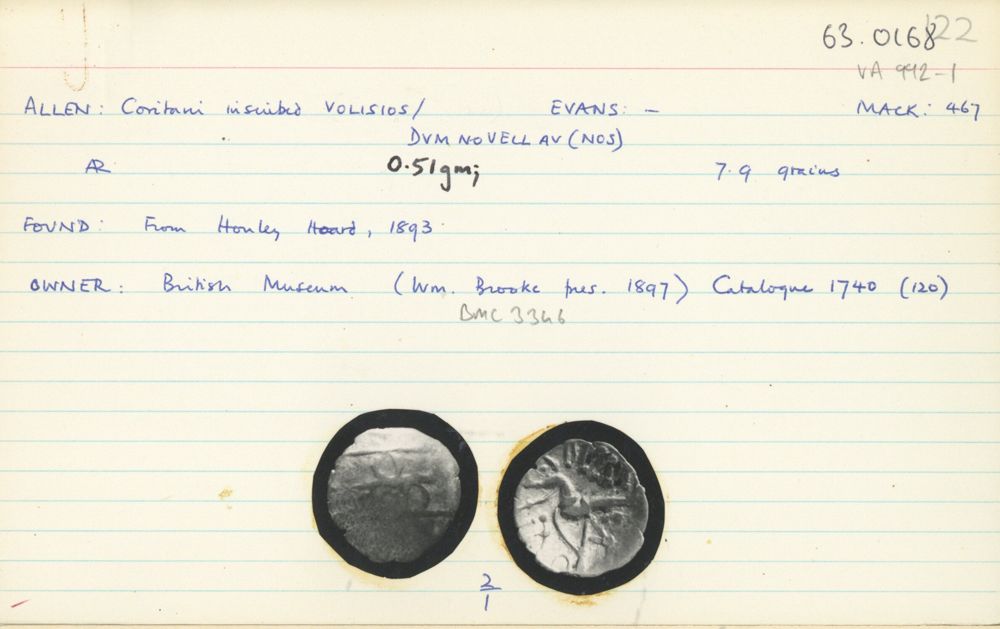 63.0168 122
VA 992-1
ALLEN: Coritani inscribed VOLISIOS/ EVANS: — MACK: 467
DVMNOVELLAV(NOS)
AR 0.51gm; 7.9 grains
FOUND: From Honley Hoard, 1893
OWNER: British Museum (Wm. Brooke pres. 1897) Catalogue 1740 (120)
BMC 3346
2/1